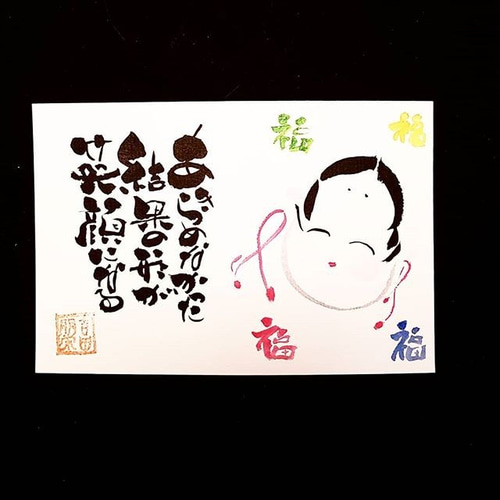 あきらめなかった
結果の形が
笑顔になる
福
福
福
福